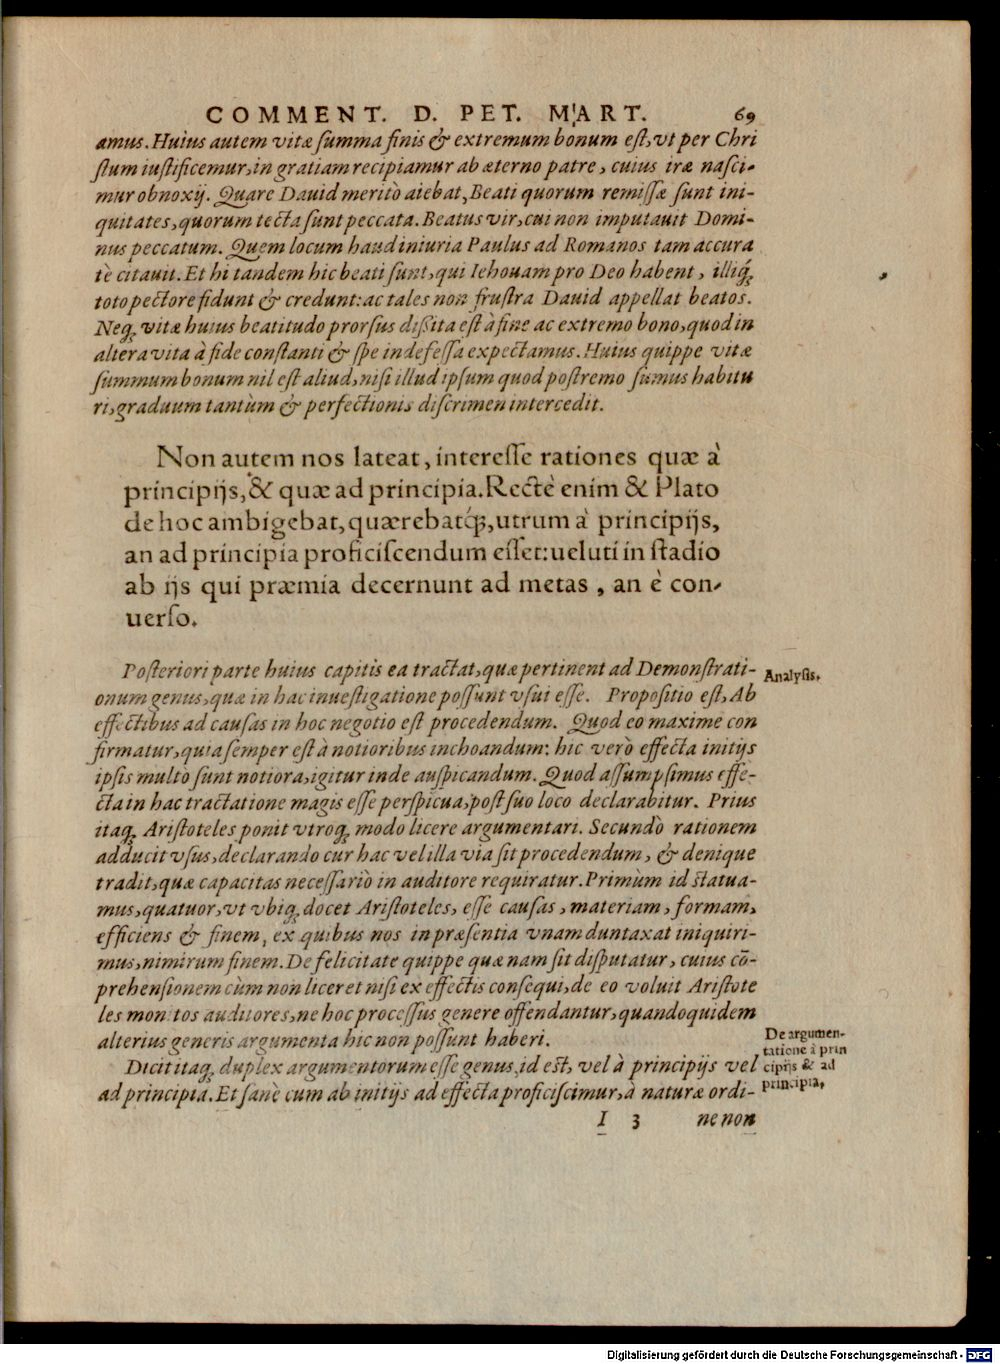 COMMENT. D. PET. MART. 69
amus. Huius autem vitæ summa finis & extremum bonum est, vt per Chri
stum iustificemur, in gratiam recipiamur ab æterno patre, cuius iræ nasci-
mur obnoxij. Quare Dauid meritò aiebat, Beati quorum remissæ sunt ini-
quitates, quorum tecta sunt peccata. Beatus vir, cui non imputauit Domi-
nus peccatum. Quem locum haud iniuria Paulus ad Romanos tam accura
tè citauit. Et hi tandem hic beati sunt, qui Iehouam pro Deo habent, illiq́;
toto pectore fidunt & credunt: ac tales non frustra Dauid appellat beatos.
Neq; vitæ huius beatitudo prorsus dissita est à fine ac extremo bono, quod in
altera vita à fide constanti & spe indefessa expectamus. Huius quippe vitæ
summum bonum nil est aliud, nisi illud ipsum quod postremo sumus habitu
ri, graduum tantùm & perfectionis discrimen intercedit.
Non autem nos lateat, interesse rationes quæ à
principijs, & quæ ad principia. Rectè enim & Plato
de hoc ambigebat, quærebatq́;, utrum à principijs,
an ad principia proficiscendum esset: ueluti in stadio
ab ijs qui præmia decernunt ad metas, an è con-
uerso.
Posteriori parte huius capitis ea tractat, quæ pertinent ad Demonstrati-
onum genus, quæ in hac inuestigatione possunt vsui esse. Propositio est, Ab
effectibus ad causas in hoc negotio est procedendum. Quod eo maxime con
firmatur, quia semper est à notioribus inchoandum: hic verò effecta initijs
ipsis multò sunt notiora, igitur inde auspicandum. Quod assumpsimus effe-
cta in hac tractatione magis esse perspicua, post suo loco declarabitur. Prius
itaq; Aristoteles ponit vtroq; modo licere argumentari. Secundò rationem
adducit vsus, declarando cur hac vel illa via sit procedendum, & denique
tradit, quæ capacitas necessariò in auditore requiratur. Primùm id statua-
mus, quatuor, vt vbiq; docet Aristoteles, esse causas, materiam, formam,
efficiens & finem, ex quibus nos in præsentia vnam duntaxat iniquiri-
mus, nimirum finem. De felicitate quippe quænam sit disputatur, cuius cō-
prehensionem cùm non liceret nisi ex effectis consequi, de eo voluit Aristote
les monitos auditores, ne hoc processus genere offendantur, quandoquidem
alterius generis argumenta hic non possunt haberi.
Dicit itaq; duplex argumentorum esse genus, id est, vel à principijs vel
ad principia. Et sanè cum ab initijs ad effecta proficiscimur, à naturæ ordi-
I 3 ne non
Analysis.
De argumen-
tatione à prin
cipijs & ad
principia.
Digitalisierung gefördert durch die Deutsche Forschungsgemeinschaft - DFG